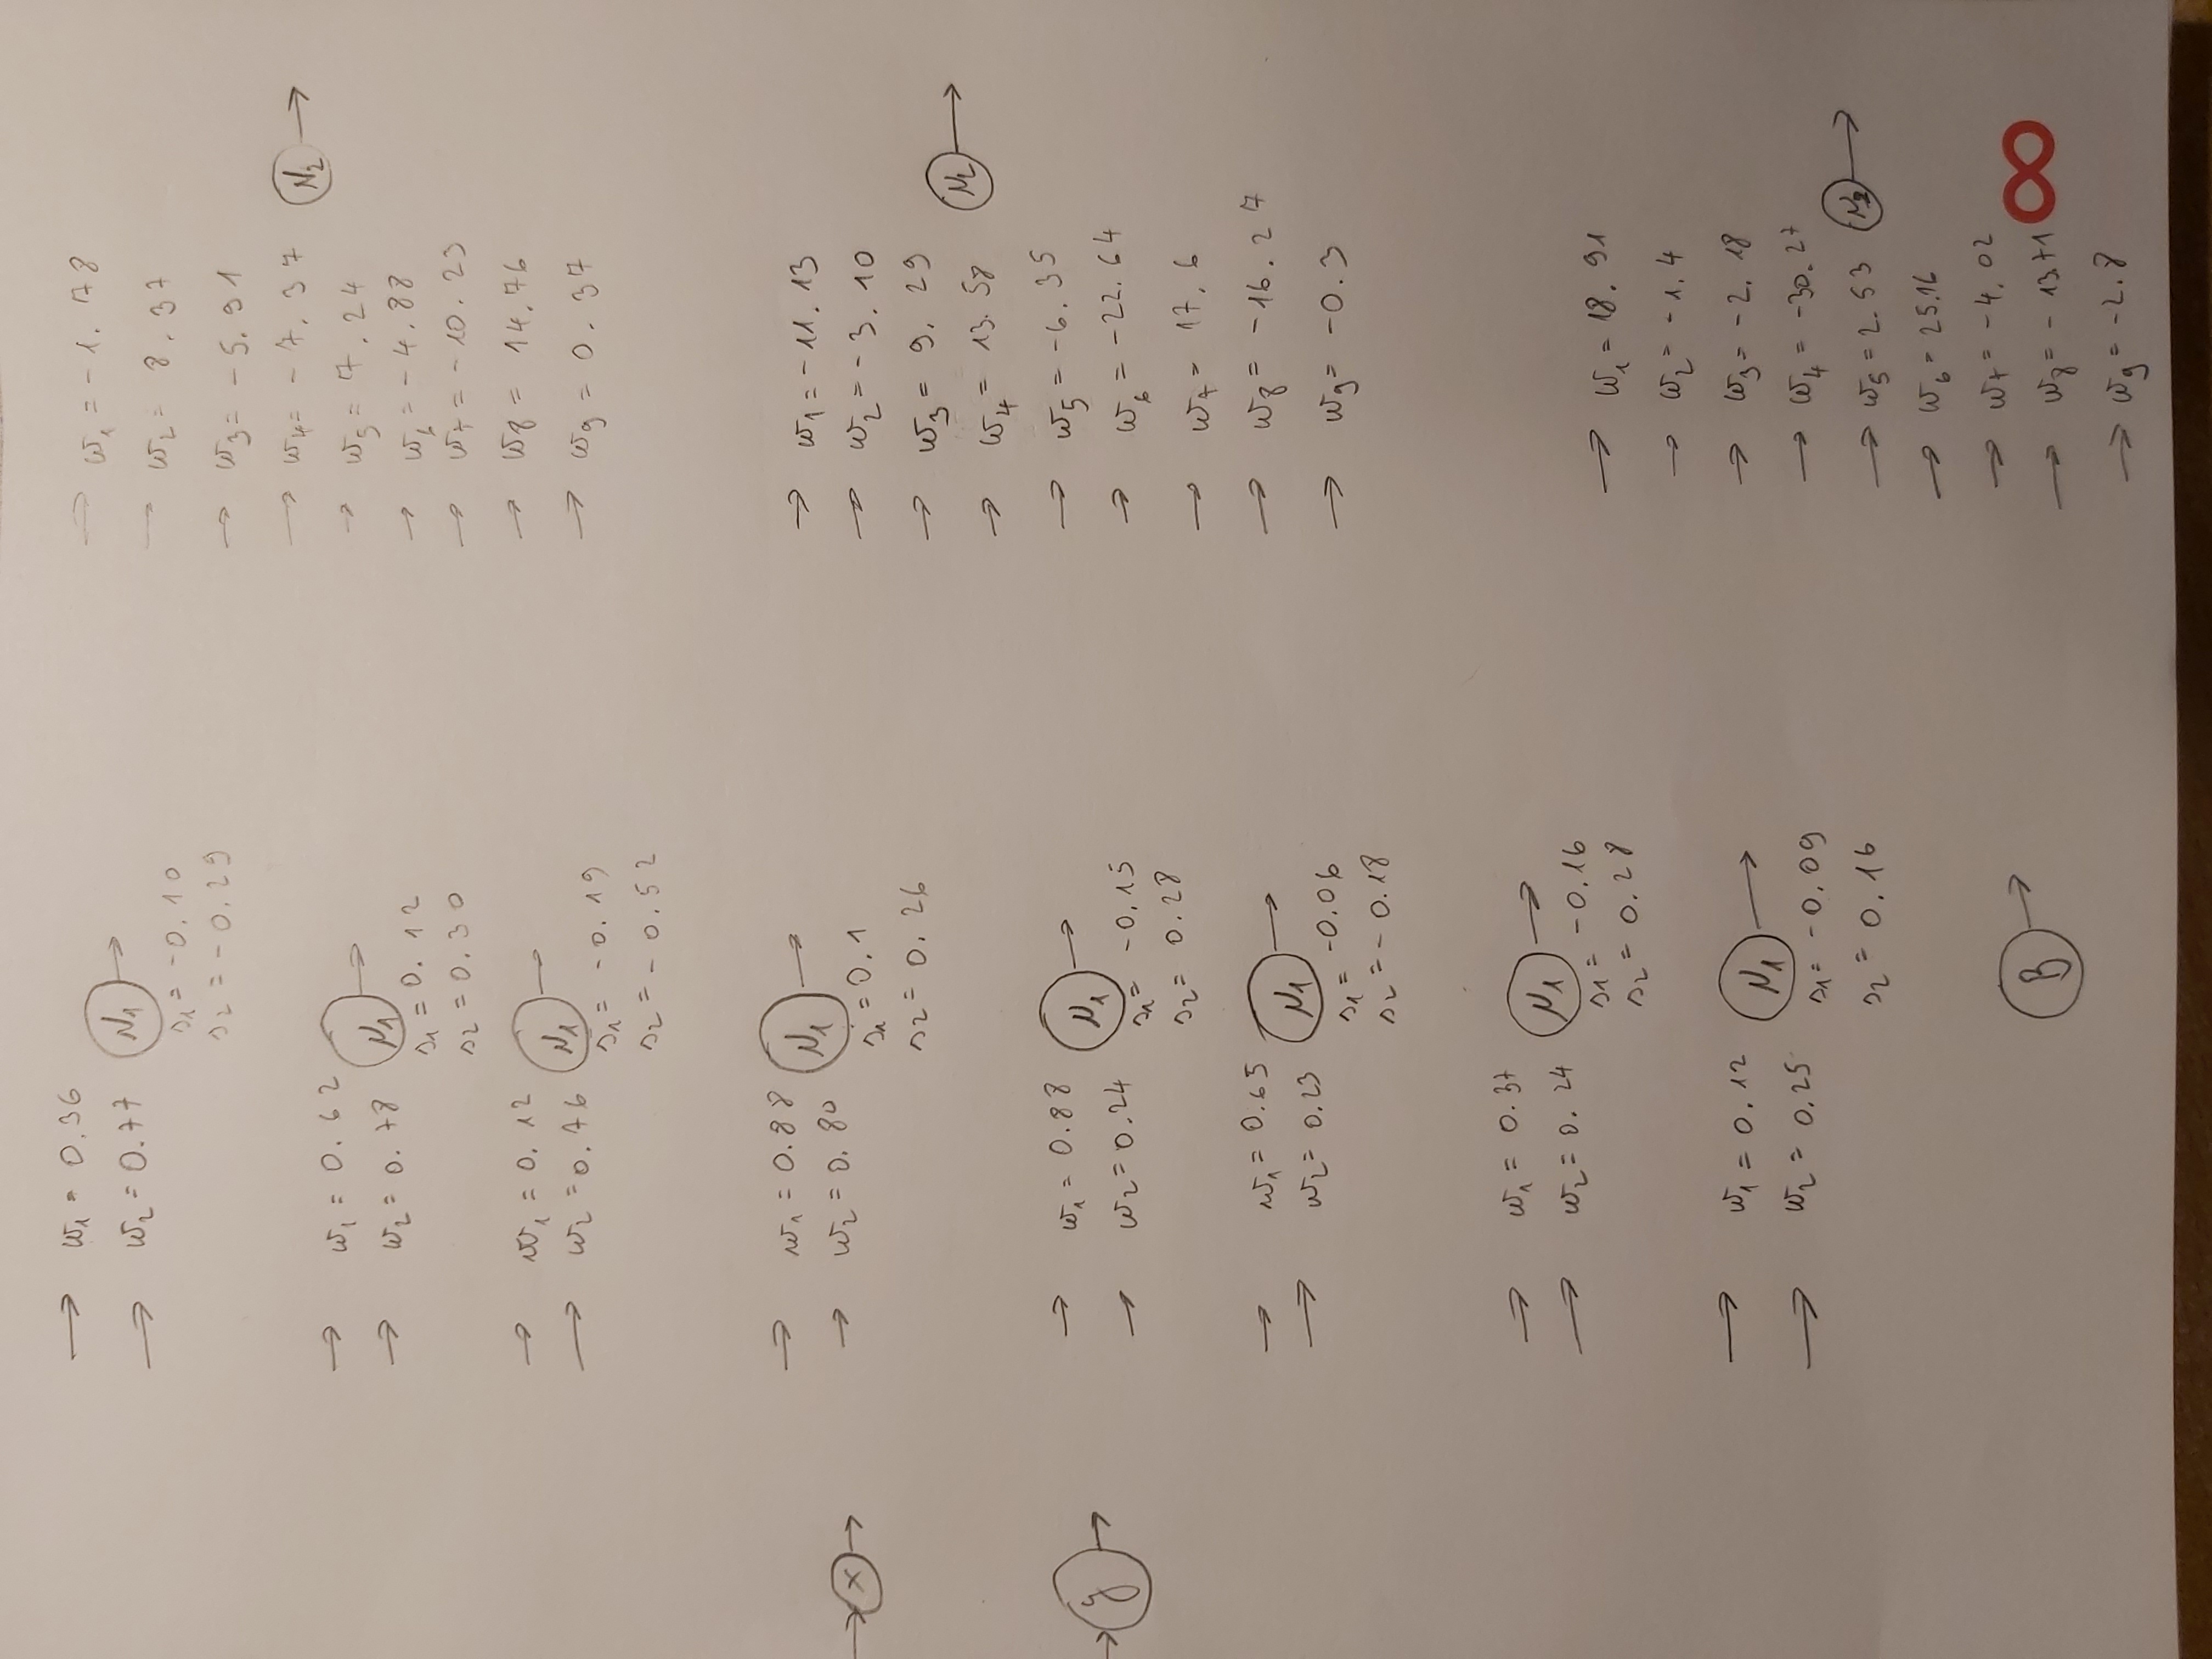 w1 = 0.36
w2 = 0.77
N1
s1 = -0.10
s2 = -0.29
w1 = 0.62
w2 = 0.78
N1
s1 = 0.12
s2 = 0.30
w1 = 0.12
w2 = 0.76
N1
s1 = -0.19
s2 = -0.52
x
w1 = 0.88
w2 = 0.80
N1
s1 = 0.1
s2 = 0.26
y
w1 = 0.88
w2 = 0.24
N1
s1 = -0.15
s2 = 0.28
w1 = 0.65
w2 = 0.23
N1
s1 = -0.06
s2 = -0.18
w1 = 0.37
w2 = 0.24
N1
s1 = -0.16
s2 = 0.28
w1 = 0.12
w2 = 0.25
N1
s1 = -0.09
s2 = 0.16
B
w1 = -1.78
w2 = 8.37
w3 = -5.91
w4 = -7.37
N2
w5 = 7.24
w6 = -4.88
w7 = -10.23
w8 = 14.76
w9 = 0.37
w1 = -11.13
w2 = -3.10
w3 = 9.29
N2
w4 = 13.58
w5 = -6.35
w6 = -22.64
w7 = 17.6
w8 = -16.27
w9 = -0.3
w1 = 18.91
w2 = -1.4
w3 = -2.18
w4 = -30.27
w5 = 2.53
N2
w6 = 25.16
w7 = -4.02
w8 = -13.71
w9 = -2.8